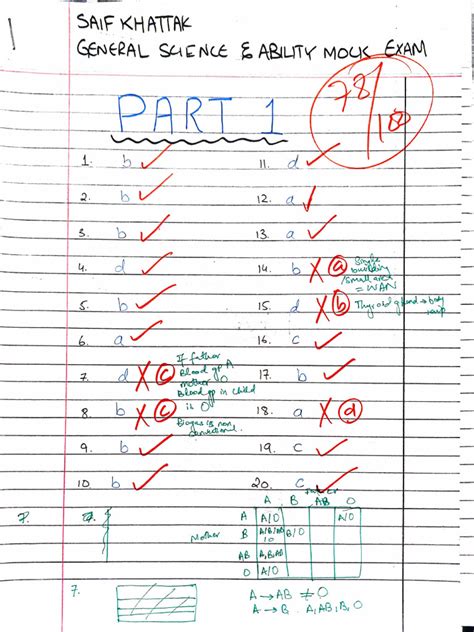 SAIF KHATTAK
GENERAL SCIENCE & ABILITY MOCK EXAM
78/100
PART 1
1. b 11. d
2. b 12. a
3. b 13. a
4. d 14. b a Single building /small area = WAN
5. b 15. d b Thyroid gland → body
6. a 16. c
7. d c If father Blood gp A mother O Blood gp in child is O 17. b
8. b c Biogas is non 18. a d
9. b 19. c
10. b 20. c
A B AB O
7. A A/O A/O
Mother B A/B/AB/O B/O
AB A,B,AB
O A/O
7. A → AB ≠ O
A → B. A, AB, B, O